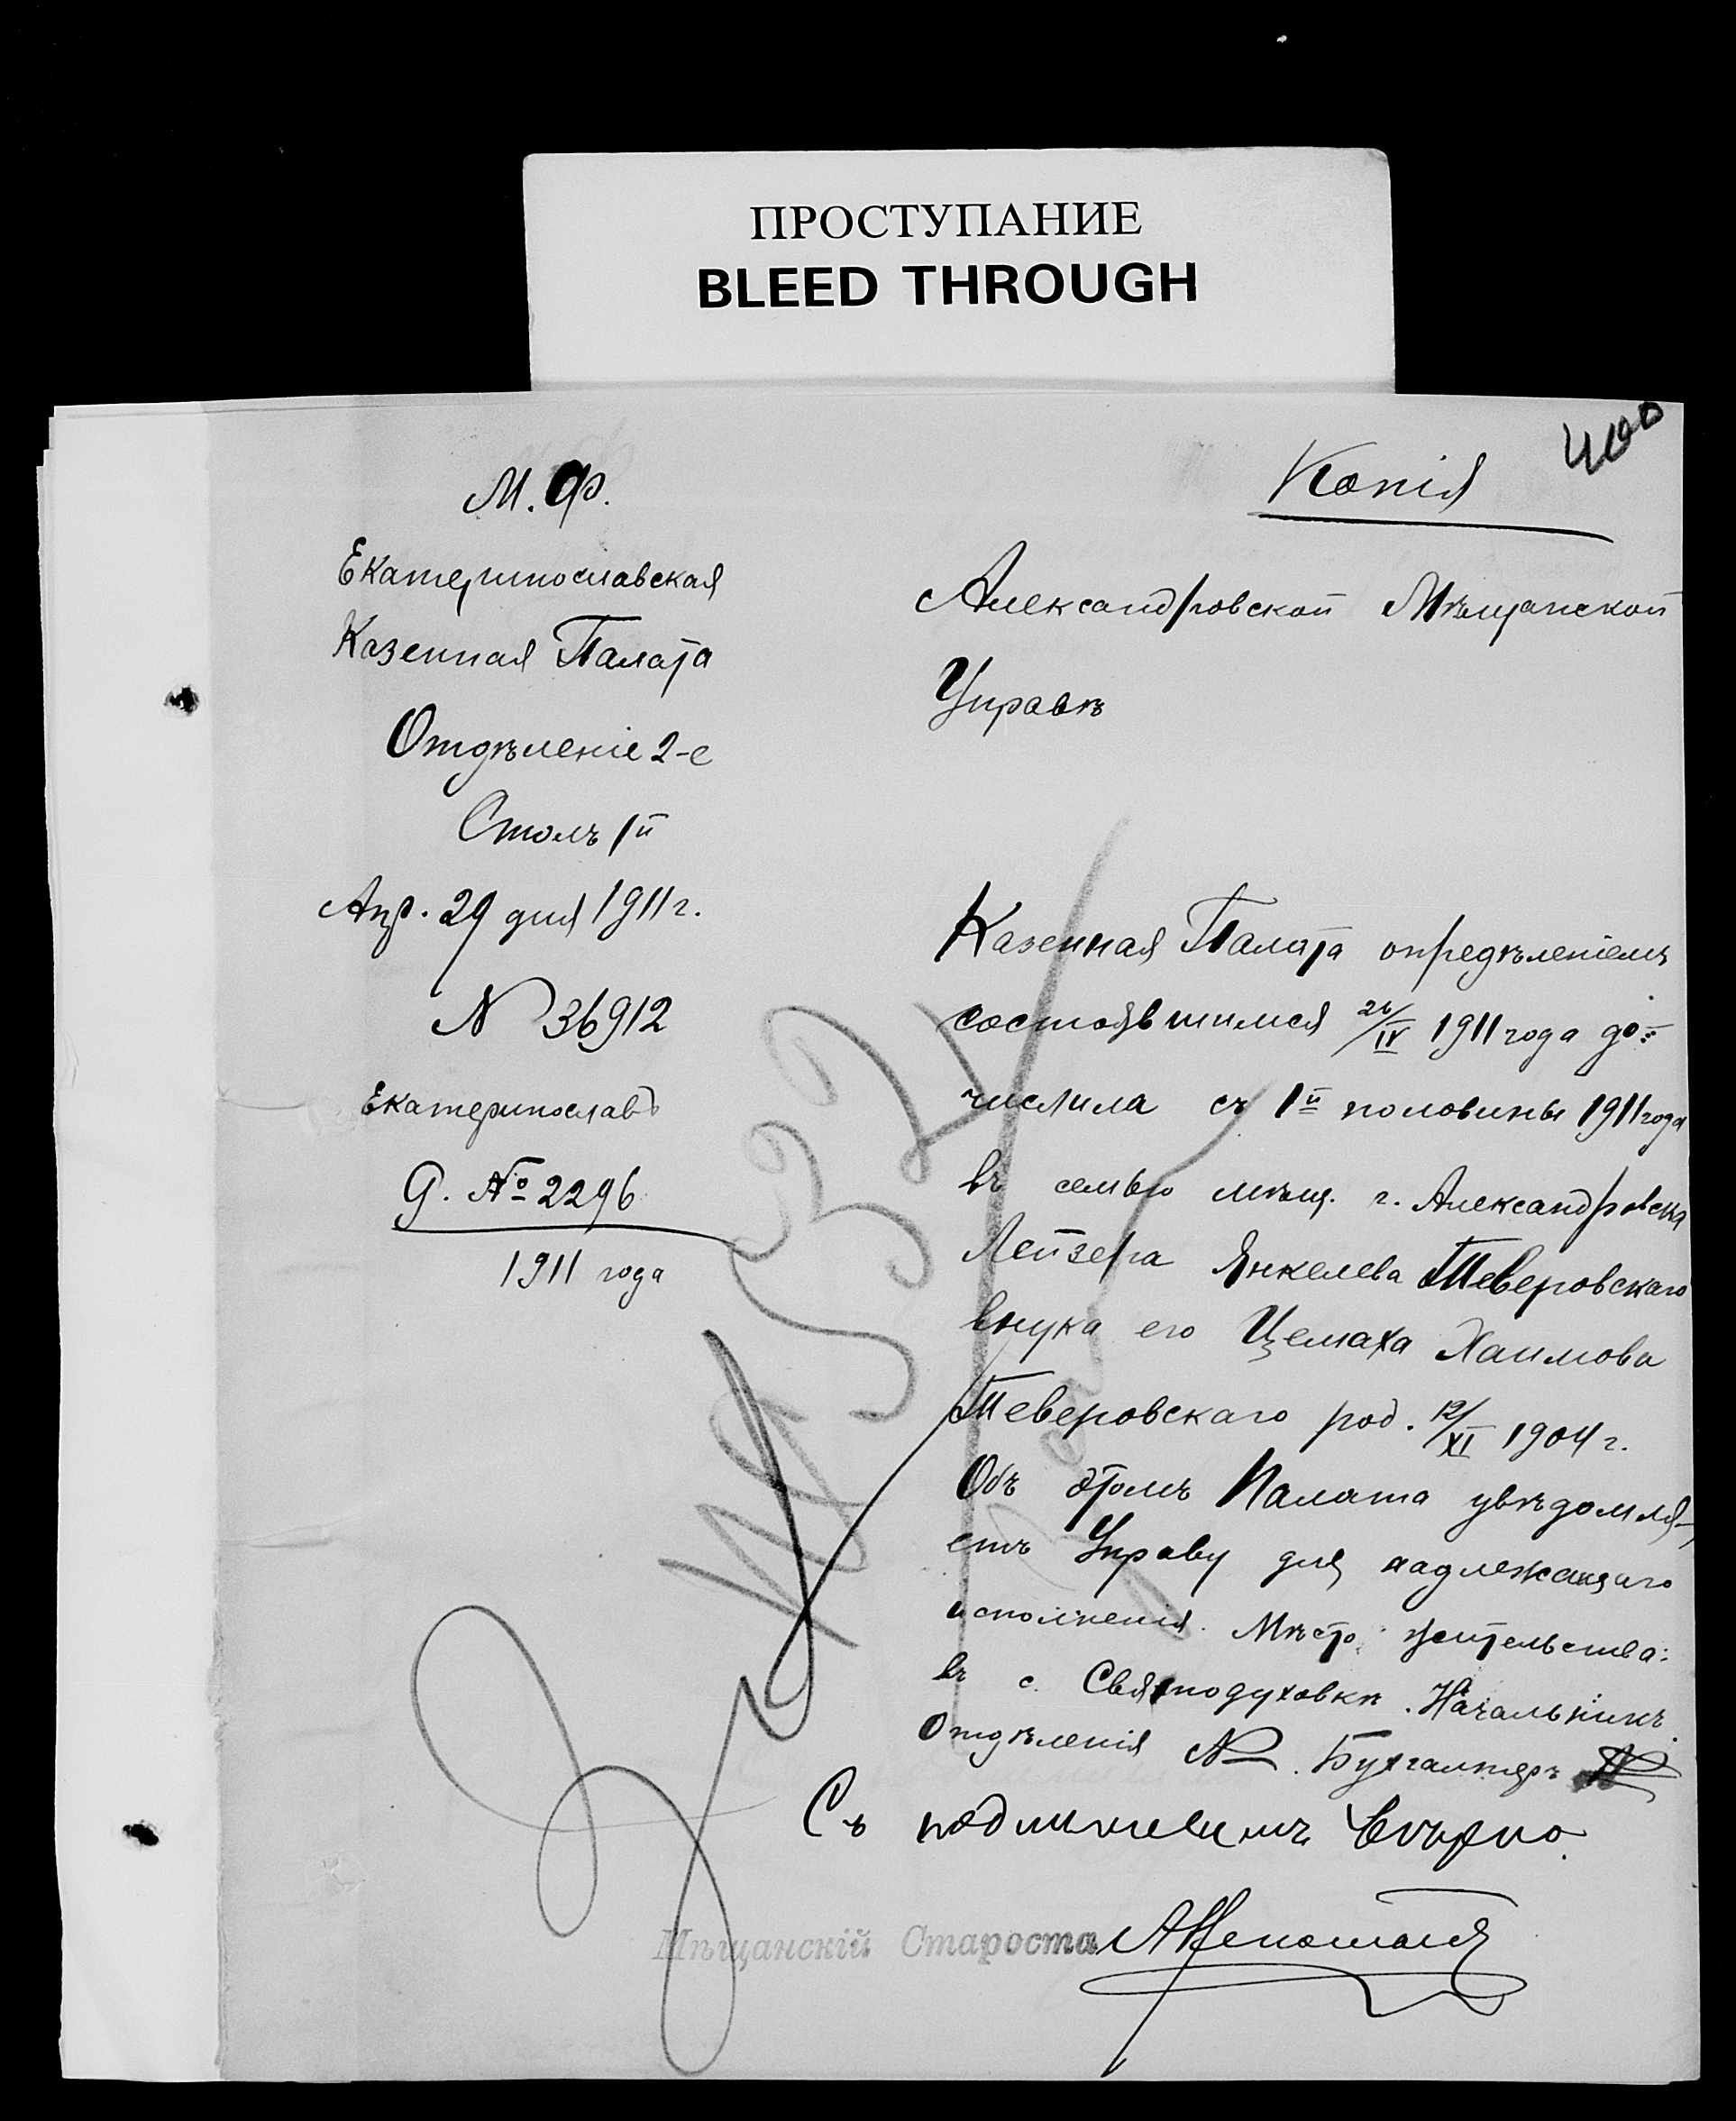 ПРОСТУПАНИЕ
BLEED THROUGH
400
Копія
М. Ф.
Екатеринославская
Казенная Палата
Отдѣленіе 2-е
Столъ 1й
Апр. 29 дня 1911 г.
N 36912
Екатеринославъ
Д. № 2296
1911 года
Александровской Мѣщанской
Управѣ
Казенная Палата опредѣленіемъ
состоявшимся 26/IV 1911 года до-
числила съ 1й половины 1911 года
въ семью мѣщ. г. Александровска
Лейзера Янкелева Теверовскаго
внука его Цемаха Хаимова
Теверовскаго род. 12/XI 1904 г.
Объ этомъ Палата увѣдомля-
етъ Управу для надлежащаго
исполненія. Мѣсто жительства:
въ с. Святодуховкѣ. Начальникъ
Отдѣленія N. Бухгалтеръ N
Съ подлиннымъ вѣрно.
Мѣщанскій Староста